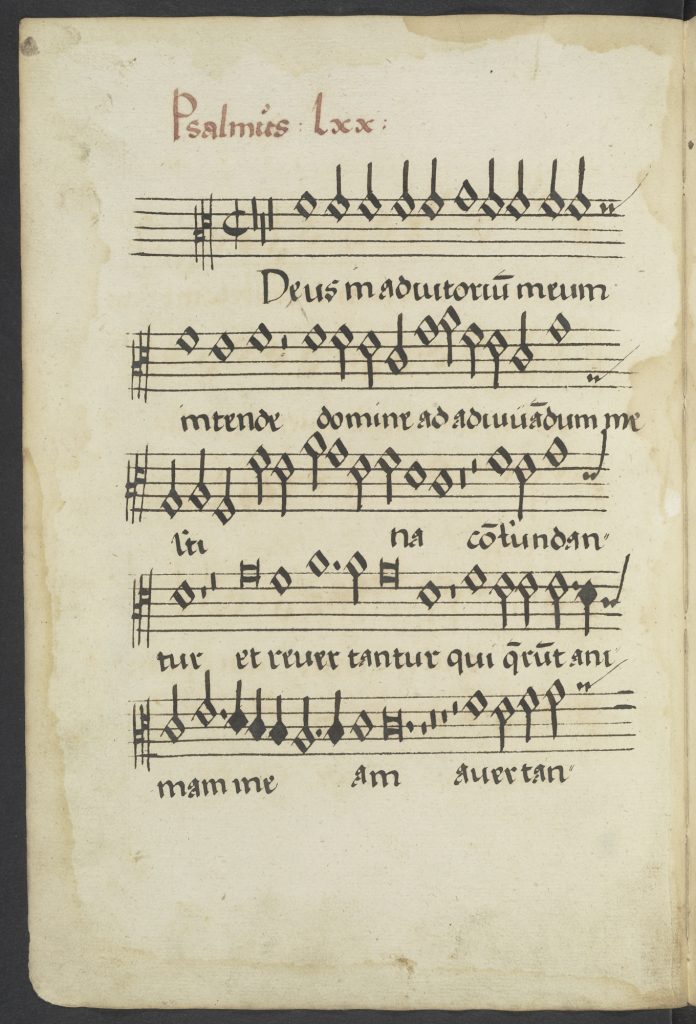 Psalmus · Lxx :
Deus in adiutoriū meum
intende domine ad adiuuādum me
na cōfundan〃
tur et reuer tantur qui q̄rūt ani
mam me am auertan〃